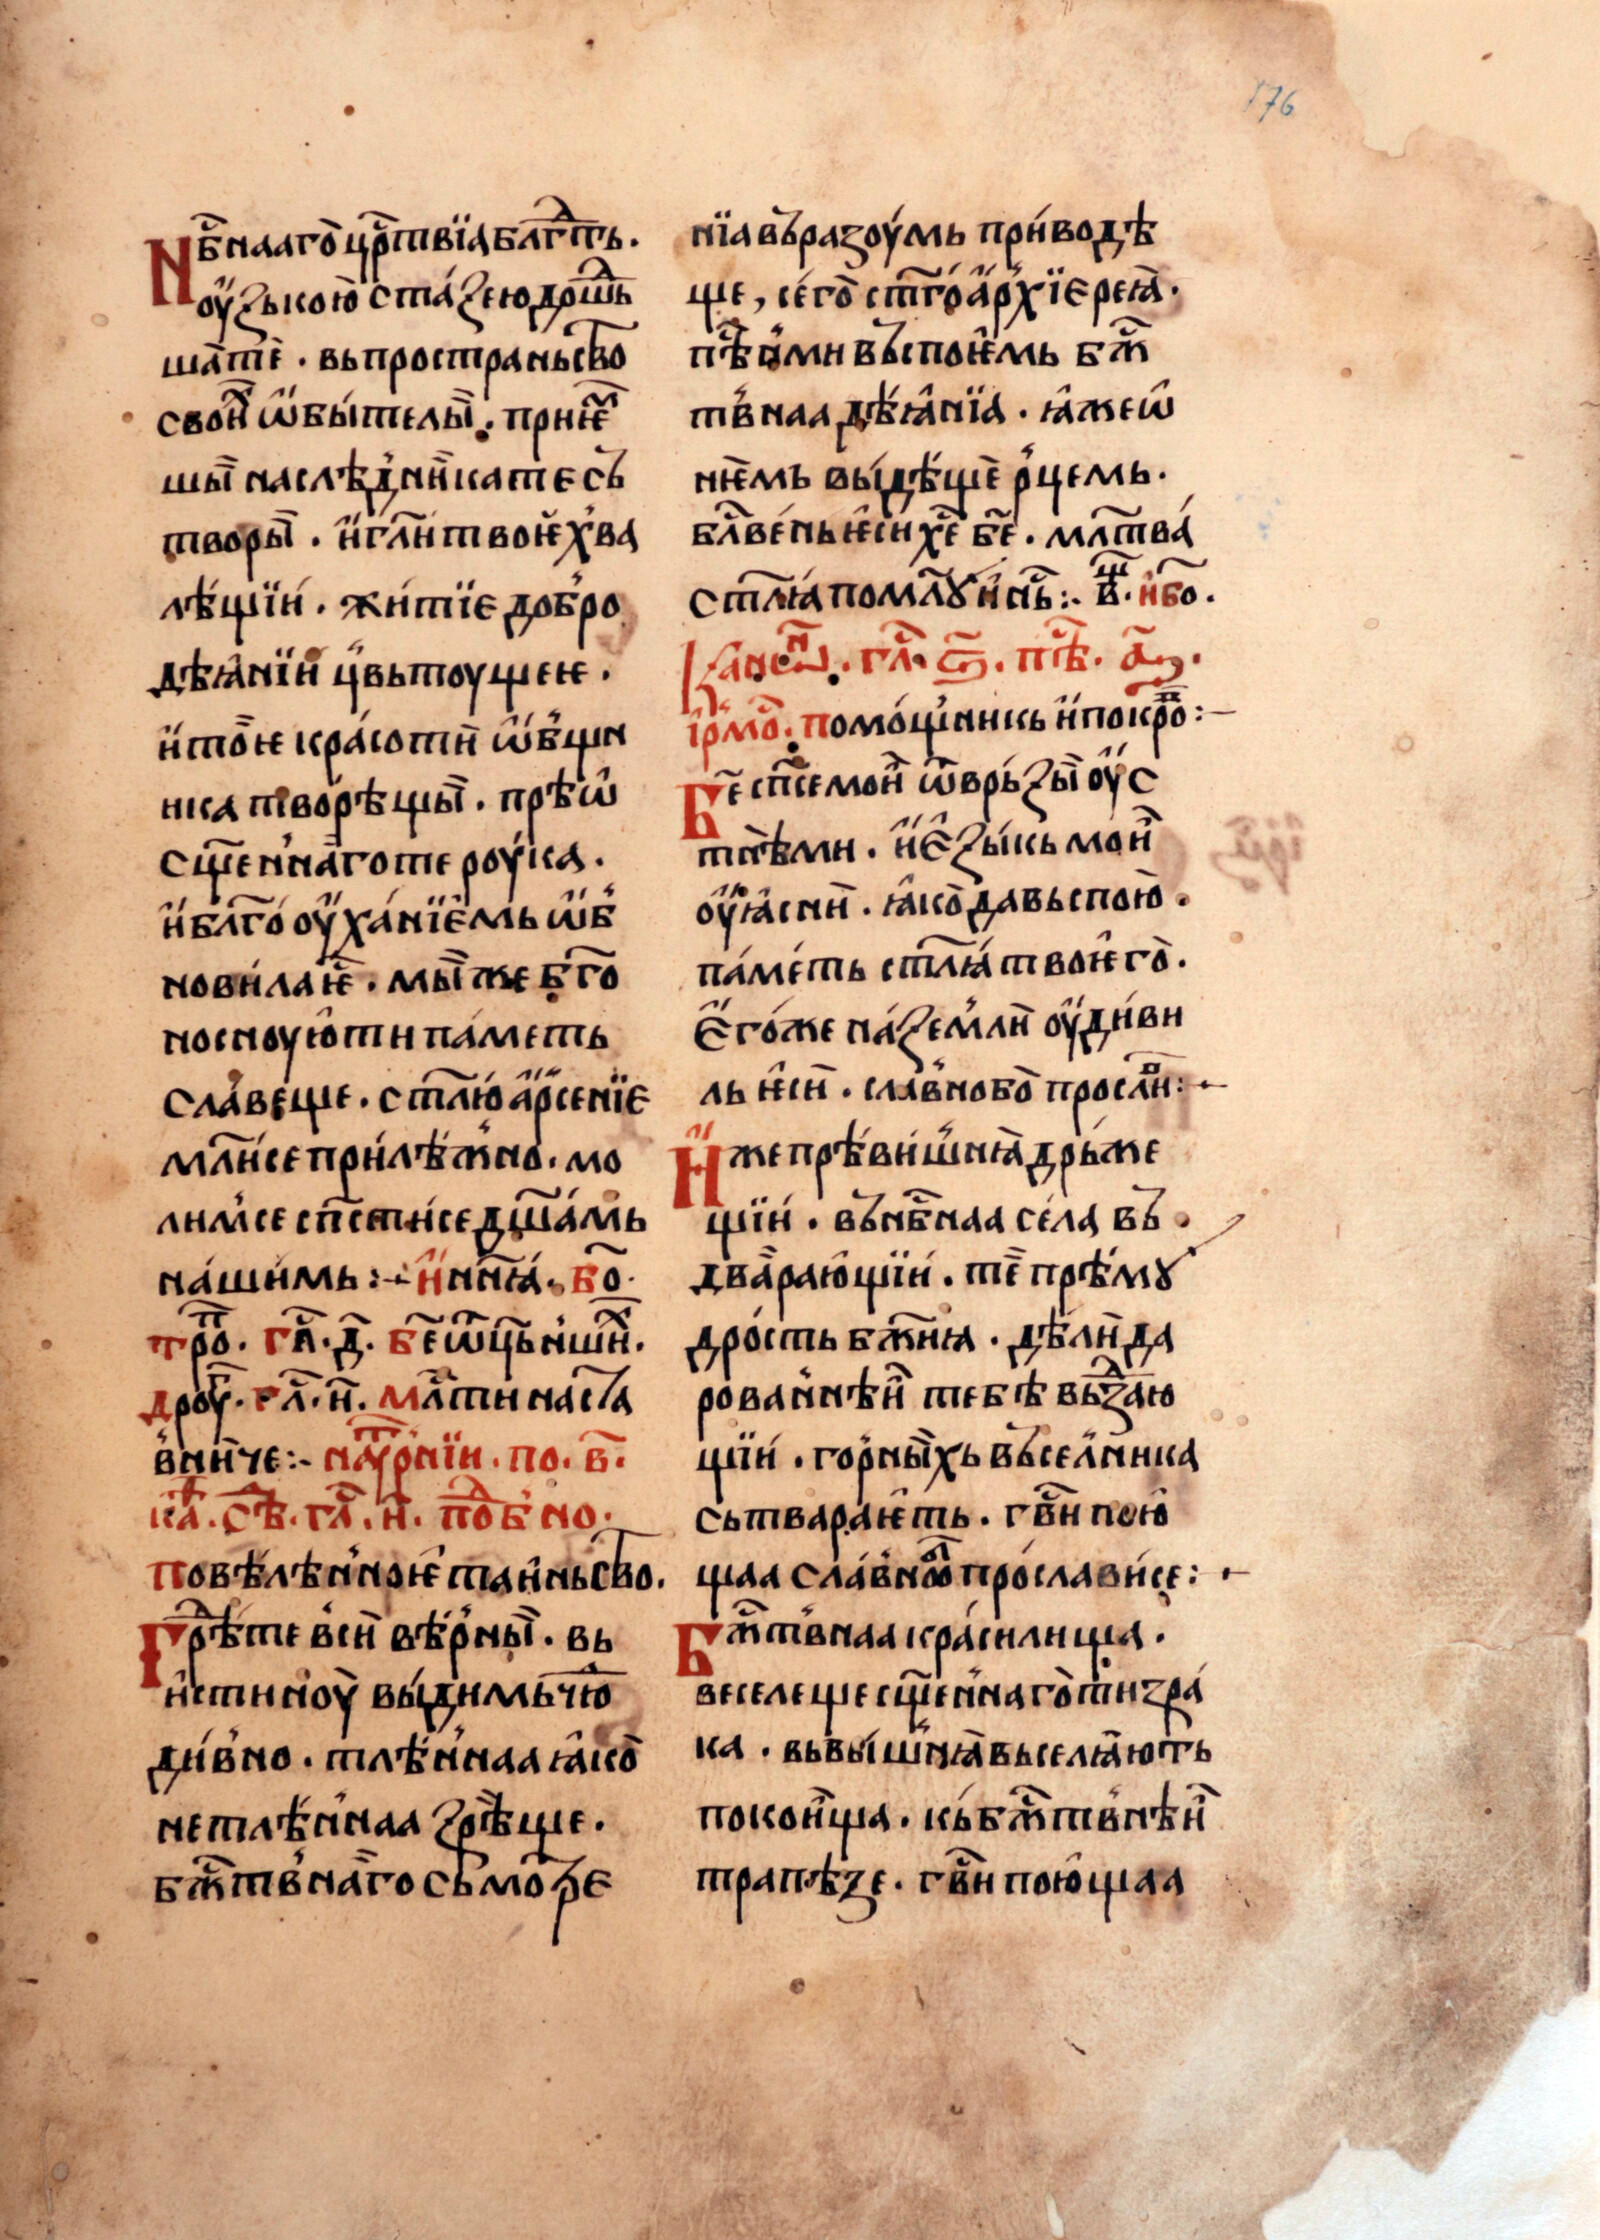 176
Нб҃нааго црⷭ҇твїа блгⷣть.
оузькою стазею дошьⷣ
шате. вьпространьство
своиⷯ ѡбытелыи. приѥⷨ
шыи наслѣдника те съ
творы. и гл҃и твоѥ хва
лѣщїи. житїе добро
дѣꙗнїи цвьтоущеѥ.
и тоѥ красоти ѡбщи
ника творѣщы. прѣѡ
сщ҃еннаго те роука.
и блг҃ооуханїемь ѡб
новилаѥⷭ. мы же бг҃о
носноую ти паметь
славеще. ст҃лю арсенїе
мл҃исе прилѣжно. мо
лимсе сп҃стисе дш҃амь
нашимь:- и нн҃ꙗ. бо.
троⷫ. глⷭ. д҃. бе҃ ѡц҃ь нашиⷯ.
дроуⷢ. гл҃. и҃. млⷭ҇ти наста
вниче:- наоутрнїи. по. в҃.
каⷴ. сѣⷣ. глⷭ. и҃. поⷣбно.
Повѣлѣнноѥ таиньство.
Грѣⷣте вси вѣрныи. вь
истиноу выдимь чюⷣ
дивно. тлѣннаа ꙗко
нетлѣннаа зрѣще.
бжⷭ҇твнаго съмотре
нїа въ разоумь приводѣ
ще, сего ст҃го архїереꙗ.
пѣⷭнми въспоѥмь бжⷭ
твнаа дѣꙗнїа. ꙗже ѡ
нѥмь выдѣще рцемь.
блⷭ҇вень ѥси хе҃ бе҃. млт҃ва
ст҃лꙗ помлꙋи нⷭь:- вⷮ҃. и бо.
Канѡⷩ. глⷭ. ѕ҃. пѣⷭ. а҃.
Ірмоⷭ. Помощникь и покроⷡ:-
Бе҃ сп҃се мои ѿврьзы оус
тнѣми. и езыкь мои
оуꙗсни. ꙗко да вьспою.
паметь ст҃лꙗ твоѥго.
Егоже на земли оудиви
ль ѥси. славно бо прослⷡ҇и:-
Иже прѣвишнꙗа дрьже
щїи. вънбⷭ҇наа села въ
дваращїи. те прѣмꙋ
дрость бж҃иꙗ. дѣли да
рованнѣи тебѣ вьздⷣаю
щїи. горныхь въселника
сьтвараѥть. гвⷭ҇и пою
щаа славноⷪ прослависе:-
Бжⷭ҇твнаа красилища.
веселеще сщ҃еннаго ти зра
ка. вьвышнꙗа вьселꙗють
покоища. кь бжⷭ҇твнѣи
трапѣзе. гвⷭ҇и поющаа